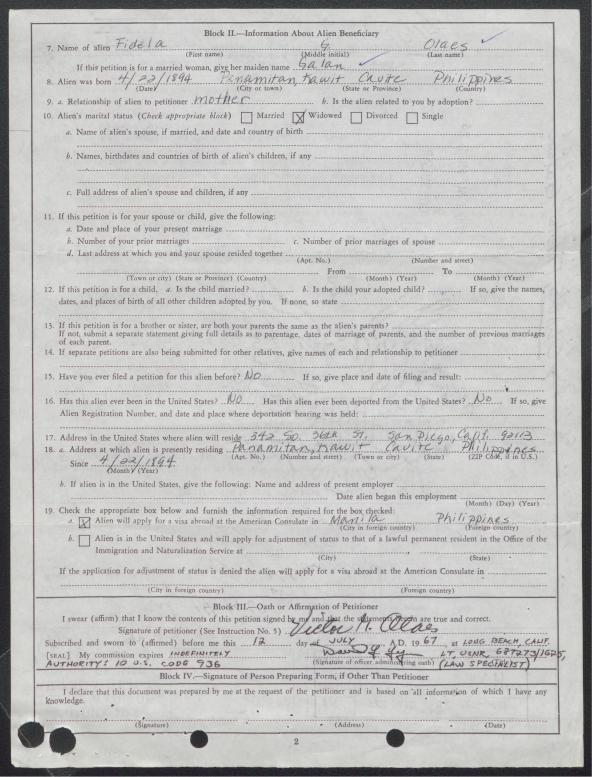 Block II.—Information About Alien Beneficiary
7. Name of alien Fidela G. Olaes
(First name) (Middle initial) (Last name)
If this petition is for a married woman, give her maiden name Galan
8. Alien was born 4/22/1894 Panamitan, Kawit Cavite Philippines
(Date) (City or town) (State or Province) (Country)
9. a. Relationship of alien to petitioner mother b. Is the alien related to you by adoption?
10. Alien's marital status (Check appropriate block) Married X Widowed Divorced Single
a. Name of alien's spouse, if married, and date and country of birth
b. Names, birthdates and countries of birth of alien's children, if any
c. Full address of alien's spouse and children, if any
11. If this petition is for your spouse or child, give the following:
a. Date and place of your present marriage
b. Number of your prior marriages c. Number of prior marriages of spouse
d. Last address at which you and your spouse resided together
(Apt. No.) (Number and street)
From To
(Town or city) (State or Province) (Country) (Month) (Year) (Month) (Year)
12. If this petition is for a child, a. Is the child married? b. Is the child your adopted child? If so, give the names,
dates, and places of birth of all other children adopted by you. If none, so state
13. If this petition is for a brother or sister, are both your parents the same as the alien's parents?
If not, submit a separate statement giving full details as to parentage, dates of marriage of parents, and the number of previous marriages
of each parent.
14. If separate petitions are also being submitted for other relatives, give names of each and relationship to petitioner
15. Have you ever filed a petition for this alien before? No If so, give place and date of filing and result:
16. Has this alien ever been in the United States? No Has this alien ever been deported from the United States? No If so, give
Alien Registration Number, and date and place where deportation hearing was held:
17. Address in the United States where alien will reside 342 So. 36th St. San Diego, Calif. 92113
18. a. Address at which alien is presently residing Panamitan, Kawit Cavite Philippines
(Apt. No.) (Number and street) (Town or city) (State) (ZIP Code, if in U.S.)
Since 4/22/1894
(Month) (Year)
b. If alien is in the United States, give the following: Name and address of present employer
Date alien began this employment
(Month) (Day) (Year)
19. Check the appropriate box below and furnish the information required for the box checked:
a. X Alien will apply for a visa abroad at the American Consulate in Manila Philippines
(City in foreign country) (Foreign country)
b. Alien is in the United States and will apply for adjustment of status to that of a lawful permanent resident in the Office of the
Immigration and Naturalization Service at
(City) (State)
If the application for adjustment of status is denied the alien will apply for a visa abroad at the American Consulate in
(City in foreign country) (Foreign country)
Block III.—Oath or Affirmation of Petitioner
I swear (affirm) that I know the contents of this petition signed by me and that the statements herein are true and correct.
Signature of petitioner (See Instruction No. 5) Victor G. Olaes
Subscribed and sworn to (affirmed) before me this 12 day of JULY A.D. 1967, at LONG BEACH, CALIF.
[SEAL] My commission expires INDEFINITELY LT, USNR, 687273/1625,
AUTHORITY: 10 U.S. CODE 936 (Signature of officer administering oath) (LAW SPECIALIST)
Block IV.—Signature of Person Preparing Form, if Other Than Petitioner
I declare that this document was prepared by me at the request of the petitioner and is based on all information of which I have any
knowledge.
(Signature) (Address) (Date)
2